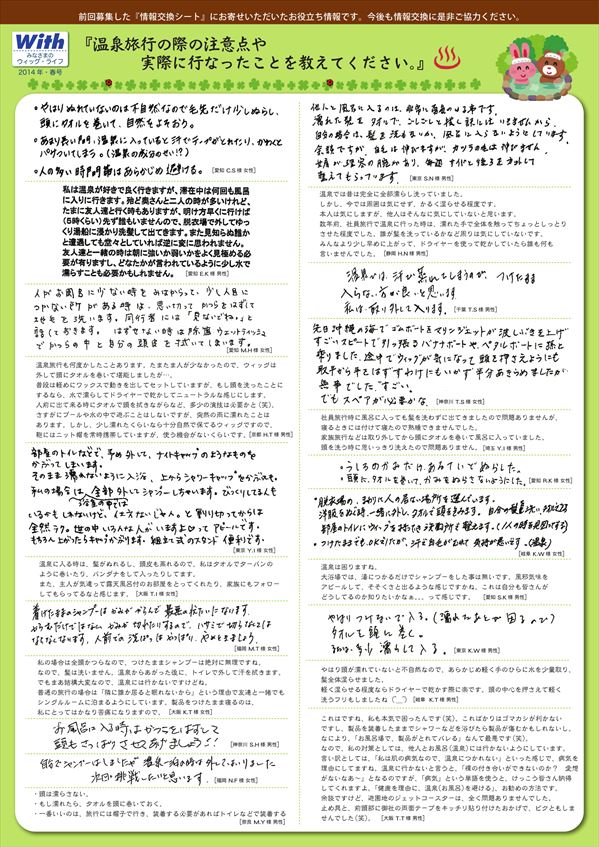 前回募集した『情報交換シート』にお寄せいただいたお役立ち情報です。今後も情報交換に是非ご協力ください。
With
みなさまの
ウィッグ・ライフ
2014年・春号
『温泉旅行の際の注意点や
実際に行なったことを教えてください。』
・やはりぬれていないのは不自然なので毛先だけ少しぬらし、
頭にタオルを巻いて、自然をよそおう。
・あまり長い時間、温泉に入っていると汗でテープがとれたり、かゆくて
パケついてしまう。(温泉の成分のせい!?)
・人の多い時間帯はあらかじめ避ける。 [愛知 C.S 様 女性]
私は温泉が好きで良く行きますが、滞在中は何回も風呂
に入りに行きます。殆ど奥さんと二人の時が多いけれど、
たまに友人達と行く時もありますが、明け方早くに行けば
(5時くらい)先ず誰もいませんので、脱衣場で外してゆっ
くり湯船に浸かり洗髪して出てきます。また見知らぬ誰か
と遭遇しても堂々としていれば逆に変に思われません。
友人達と一緒の時は朝に強いか弱いかをよく見極める必
要が有りますし、どなたかが言われているように少し水で
濡らすことも必要かもしれません。 [愛知 E.K 様 男性]
人がお風呂に少ない時をみはからって、少し人目に
つかない所がある時は、思い切ってかつらをはずして
かみを洗います。同行者には「見ないでね。」と
話しておきます。はずせない時は除菌ウェットティッシュ
でかつらの中と自分の頭皮を拭いてしまいます。
[愛知 M.H 様 女性]
温泉旅行も何度かしたことあります。たまたま人が少なかったので、ウィッグは
外して頭にタオルを巻いて堪能しましたが…。
普段は軽めにワックスで動きを出してセットしていますが、もし頭を洗ったことに
するなら、水で濡らしてドライヤーで乾かしてニュートラルな感じにします。
人前に出て来る時にタオルで頭を拭きながらなど、多少の演技は必要かと(笑)。
さすがにプールや水の中で遊ぶことはしないですが、突然の雨に濡れたことは
あります。しかし、少し濡れたくらいなら十分自然で保てるウィッグですので、
鞄にはニット帽を常時携帯していますが、使う機会がないくらいです。 [京都 H.T 様 男性]
部屋のトイレなどで、予め外して、ナイトキャップのようなものを
かぶってしまいます。
そのまま濡れないように入浴、上からシャワーキャップをかぶっても。
私の場合は、全部外してシャンプーしちゃいます。びっくりしてる人も
いるかもしれないけど、イエネないじゃん。と割り切ってからは
全然ラク。世の中いろんな人がいますよ〜ってアピールです。
もちろん上がったらキャップかぶります。組立式のスタンド便利です。
[東京 Y.I 様 女性]
温泉に入る時は、髪がぬれるし、頭皮も蒸れるので、私はタオルでターバンの
ように巻いたり、バンダナをして入ったりしてます。
また、主人が気遣って露天風呂付のお部屋をとってくれたり、家族にもフォロー
してもらってるなと感じます。 [大阪 T.I 様 女性]
着けたままのシャンプーはかみがからんで最悪の状たいになります。
[福岡 M.T 様 女性]
私の場合は全頭かつらなので、つけたままシャンプーは絶対に無理ですね。
なので、髪は洗いません。温泉からあがった後に、トイレで外して汗を拭きます。
でもまあ結構大変なので、温泉には行かないですけどね。
普通の旅行の場合は「隣に誰か居ると眠れないから」という理由で友達と一緒でも
シングルルームに泊まるようにしています。製品をつけたまま寝るのは、
私にとってはかなり苦痛になりますので。 [大阪 K.T 様 女性]
お風呂に入る時はかつらをはずして
頭もさっぱりさせてあげましょう♪! [神奈川 S.H 様 男性]
[福岡 N.F 様 女性]
・頭は濡らさない。
・もし濡れたら、タオルを頭に巻いておく。
・一番いいのは、旅行には帽子で行き、装着する必要があればトイレなどで装着する
[奈良 M.Y 様 男性]
[東京 S.N 様 男性]
温泉では昔は完全に全部濡らし洗っていました。
しかし、今では周囲は気にせず、かるく湿らせる程度です。
本人は気にしますが、他人はそんなに気にしていないと思います。
数年前、社員旅行で温泉に行った時は、濡れた手で全体を触ってちょっとしっとり
させた程度でした。誰が髪を洗っているかなど周りは気にしていないです。
みんなより少し早めに上がって、ドライヤーを使って乾かしていたら誰も何も
言いませんでした。 [静岡 H.N 様 男性]
温泉心は、汗が蒸れてしまうのが、つけたまま
入らない方が良いと思います
私は取り外して入ります。 [千葉 T.S 様 男性]
先日沖縄の海でゴムボートをマリンジェットが波しぶきを上げ
すごいスピードで引っ張るバナナボートや、ペダルボートに孫と
乗りました。途中でウィッグが気になって頭を押さえようにも
取手から手をはずすわけにもいかず半分あきらめましたが
無事でした。すごい。
でもスペアが必要かな。 [神奈川 T.S 様 女性]
社員旅行時に風呂に入っても髪を洗わずに出てきましたので問題ありませんが、
寝るときには付けて寝たので熟睡できませんでした。
家族旅行などは取り外してから頭にタオルを巻いて風呂に入っていました。
頭を洗う時に思いっきり洗えたので問題ありません。 [埼玉 Y.J 様 男性]
・うしろのかみだけ、あるていどぬらした。
・頭に、タオルを巻いて、かみをぬらさないようにした。 [愛知 R.K 様 女性]
・脱衣場の、まわりに人の居ない場所を選んでいます。
[岐阜 K.W 様 女性]
温泉は困りますね。
大浴場では、湯につかるだけでシャンプーをした事は無いです。風邪気味を
アピールして、そそくさと出るような感じですかね。これは自分も皆さんが
どうしてるのか知りたいかなぁ。。。って感じです。 [愛知 S.K 様 男性]
やはりつけないで入る。(濡れることが困るので)
タオルを頭に巻く。
[東京 K.W 様 男性]
やはり頭が濡れていないと不自然なので、あらかじめ軽く手のひらに水を少量取り、
髪全体湿らせました。
軽く湿らせる程度ならドライヤーで乾かす際に楽です、頭の中心を押さえて軽く
洗うフリもしましたね(^__^) [岐阜 K.T 様 男性]
これはですね、私も本気で困ったんです(笑)。こればかりはゴマカシが利かない
ですし、製品を装着したままでシャワーなどを浴びたら製品が傷むかもしれないし。
なにより、「お風呂場で、製品がとれている」なんて最悪です(笑)。
なので、私の対策としては、他人とお風呂(温泉)には行かないようにしています。
言い訳としては、「私は肌の病気なので、温泉につかれない」といった感じで、病気を
理由にしてますね。温泉に行かないと言うと、「裸の付き合いができないのか? 愛想
がないなあ〜」となるのですが、「病気」という単語を使うと、けっこう皆さん納得
してくれますよ。「健康を理由に、温泉(お風呂)を避ける」、お勧めの方法です。
余談ですけど、遊園地のジェットコースターは、全く問題ありませんでした。
止め具と、前頭部に御社の両面テープをキッチリ貼り付けたおかげで、ビクともしま
せんでした(笑)。 [大阪 T.T 様 男性]